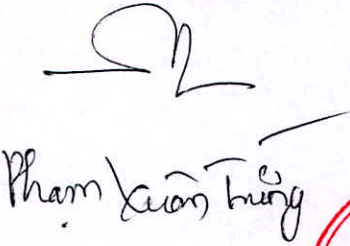 Phạm Xuân Trường